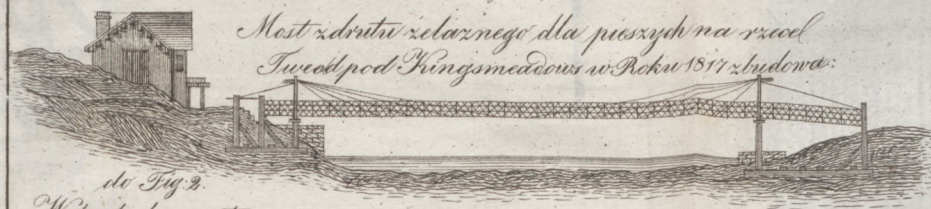 Most z drutu żelaznego dla pieszych na rzece
Tweed pod Kingsmeadows w Roku 1817 zbudowa:
do Fig: 2.